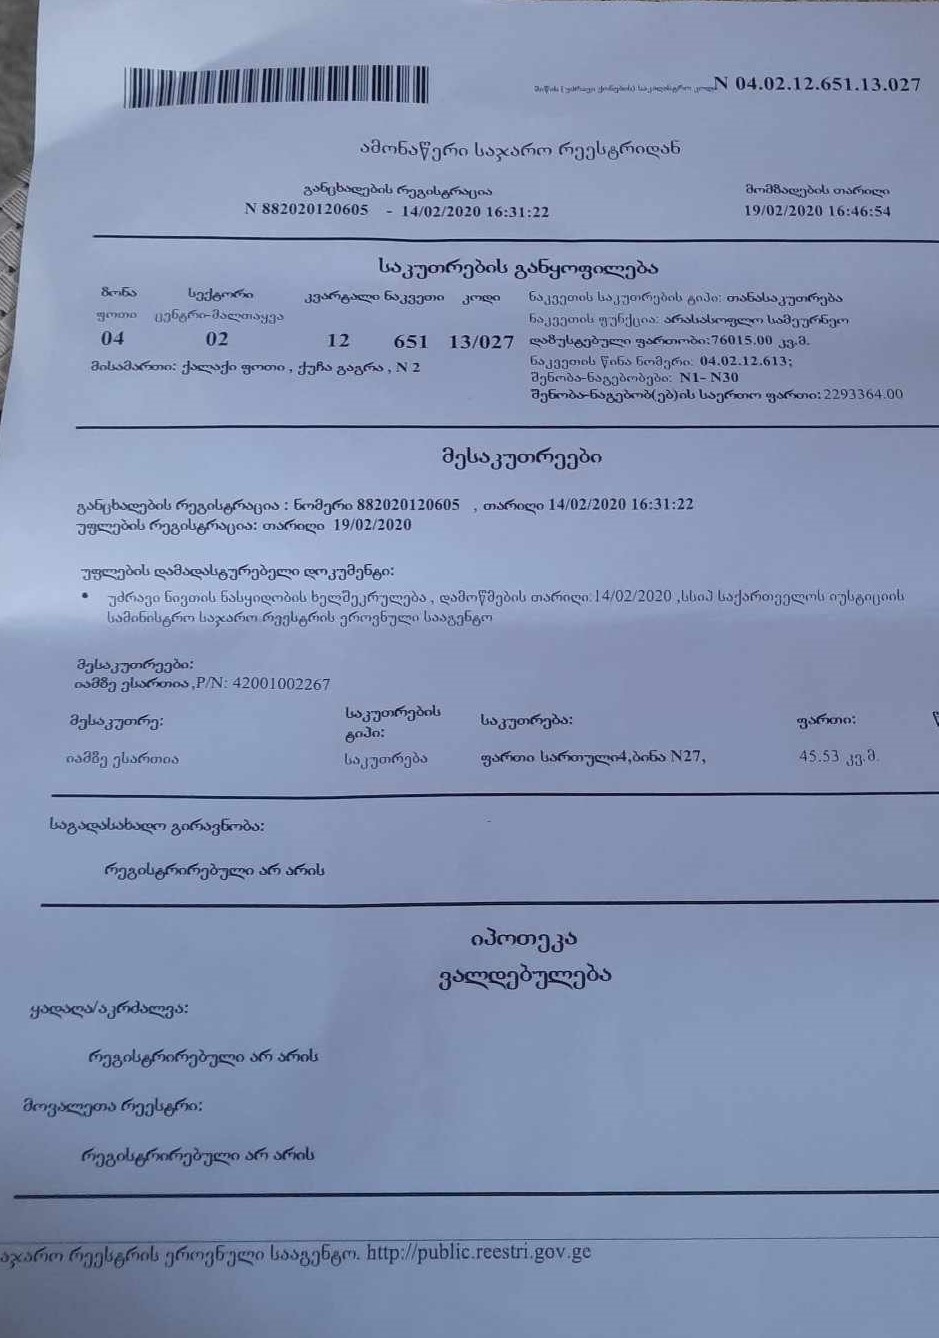 მიწის ( უძრავი ქონების) საკადასტრო კოდი N 04.02.12.651.13.027
ამონაწერი საჯარო რეესტრიდან
განცხადების რეგისტრაცია
N 882020120605 - 14/02/2020 16:31:22
მომზადების თარიღი
19/02/2020 16:46:54
საკუთრების განყოფილება
ზონა სექტორი კვარტალი ნაკვეთი კოდი
ფოთი ცენტრი-მალთაყვა
04 02 12 651 13/027
მისამართი: ქალაქი ფოთი , ქუჩა გაგრა , N 2
ნაკვეთის საკუთრების ტიპი: თანასაკუთრება
ნაკვეთის ფუნქცია: არასასოფლო სამეურნეო
დაზუსტებული ფართობი:76015.00 კვ.მ.
ნაკვეთის წინა ნომერი: 04.02.12.613;
შენობა-ნაგებობები: N1- N30
შენობა-ნაგებობ(ებ)ის საერთო ფართი:2293364.00
მესაკუთრეები
განცხადების რეგისტრაცია : ნომერი 882020120605 , თარიღი 14/02/2020 16:31:22
უფლების რეგისტრაცია: თარიღი 19/02/2020
უფლების დამადასტურებელი დოკუმენტი:
• უძრავი ნივთის ნასყიდობის ხელშეკრულება , დამოწმების თარიღი:14/02/2020 ,სსიპ საქართველოს იუსტიციის
სამინისტრო საჯარო რეესტრის ეროვნული სააგენტო
მესაკუთრეები:
იამზე ესართია ,P/N: 42001002267
მესაკუთრე: საკუთრების ტიპი: საკუთრება: ფართი:
იამზე ესართია საკუთრება ფართი სართული4,ბინა N27, 45.53 კვ.მ.
საგადასახადო გირავნობა:
რეგისტრირებული არ არის
იპოთეკა
ვალდებულება
ყადაღა/აკრძალვა:
რეგისტრირებული არ არის
მოვალეთა რეესტრი:
რეგისტრირებული არ არის
აჯარო რეესტრის ეროვნული სააგენტო. http://public.reestri.gov.ge